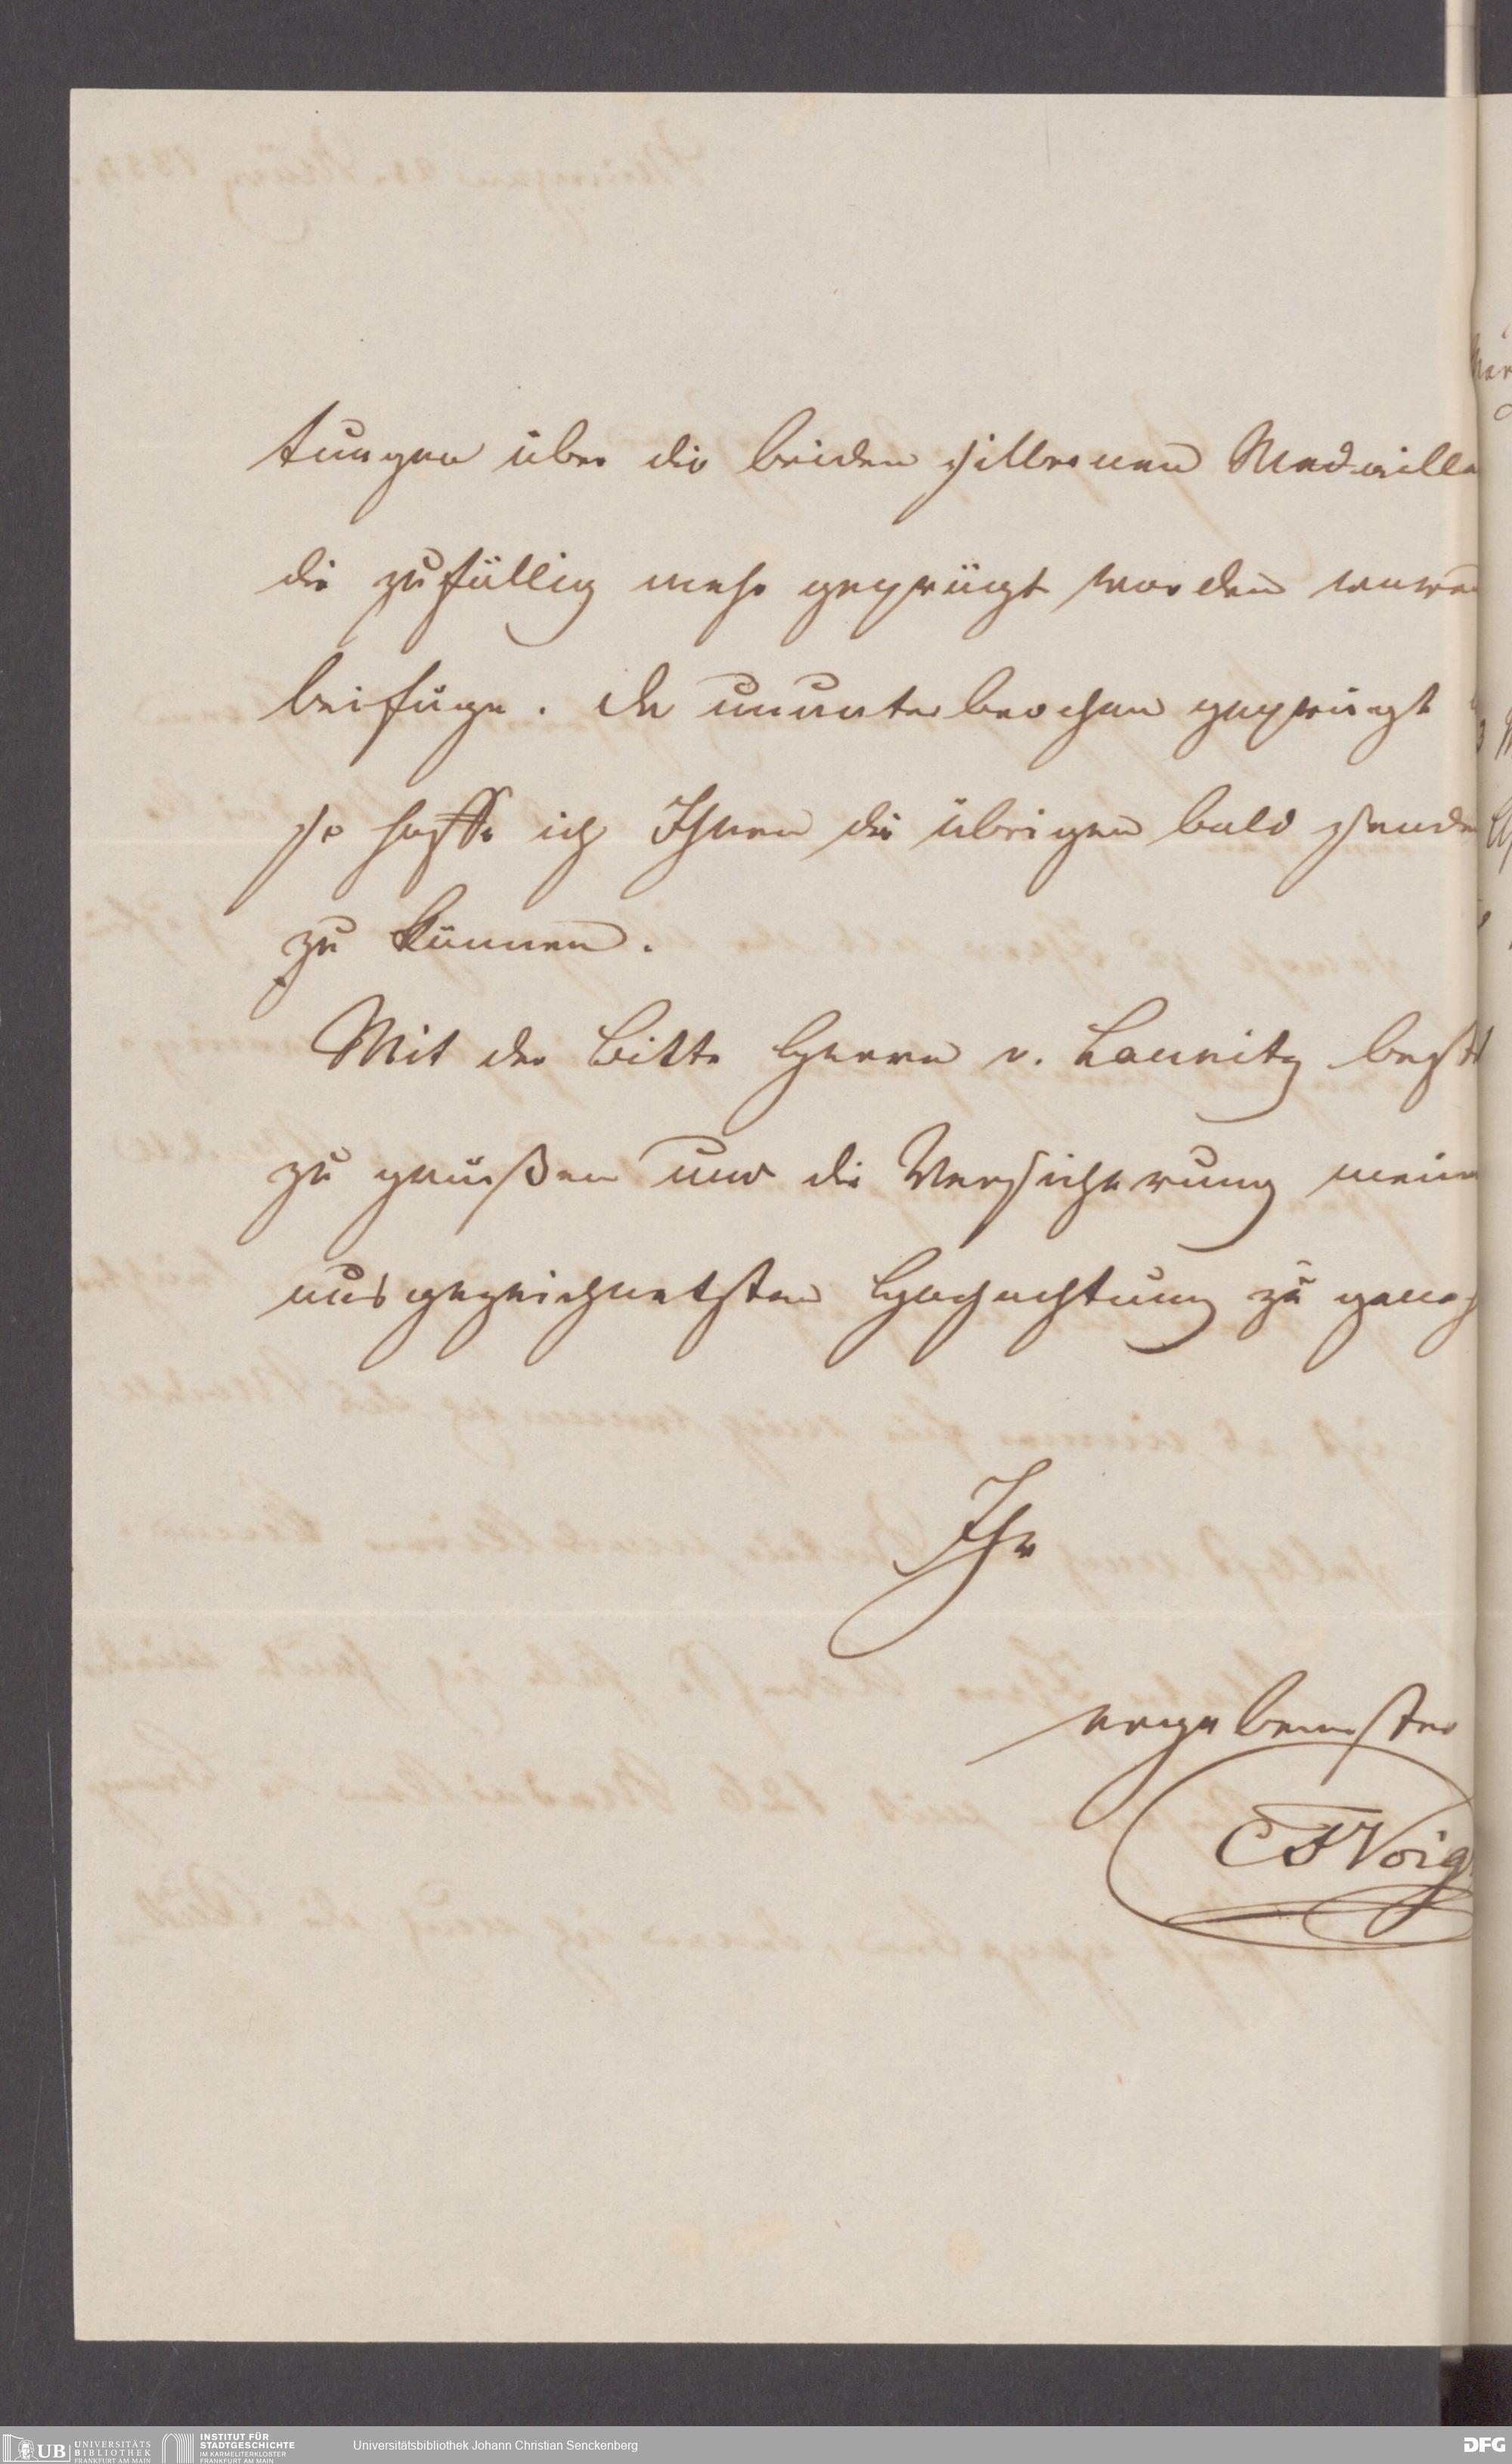 tungen über die beiden silbernen Medaille
die zufällig mehr geprägt worden waren
beifüge. Da ununterbrochen geprägt
so hoffe ich Ihnen die übrigen bald senden
zu können.
Mit der Bitte Herrn v. Launitz best
zu grüßen und die Versicherung mein
ausgezeichnetsten Hochachtung zu geneh
Ihr
ergebenster
CFVoig
UB UNIVERSITÄTS
BIBLIOTHEK
FRANKFURT AM MAIN
INSTITUT FÜR
STADTGESCHICHTE
IM KARMELITERKLOSTER
FRANKFURT AM MAIN
Universitätsbibliothek Johann Christian Senckenberg
DFG